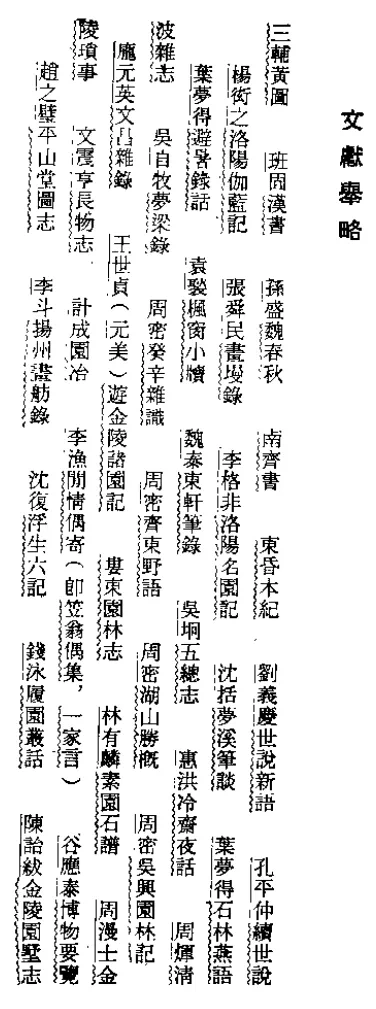 文獻舉略
三輔黃圖 班固漢書 孫盛魏春秋 南齊書 東昏本紀 劉義慶世說新語 孔平仲續世說
楊衒之洛陽伽藍記 張舜民畫墁錄 李格非洛陽名園記 沈括夢溪筆談 葉夢得石林燕語
葉夢得避暑錄話 袁褧楓窗小牘 魏泰東軒筆錄 吳坰五總志 惠洪冷齋夜話 周煇清
波雜志 吳自牧夢梁錄 周密癸辛雜識 周密齊東野語 周密湖山勝概 周密吳興園林記
龐元英文昌雜錄 王世貞(元美)遊金陵諸園記 婁東園林志 林有麟素園石譜 周漫士金
陵瑣事 文震亨長物志 計成園冶 李漁閒情偶寄(卽笠翁偶集,一家言) 谷應泰博物要覽
趙之壁平山堂圖志 李斗揚州畫舫錄 沈復浮生六記 錢泳履園叢話 陳詒紱金陵園墅志